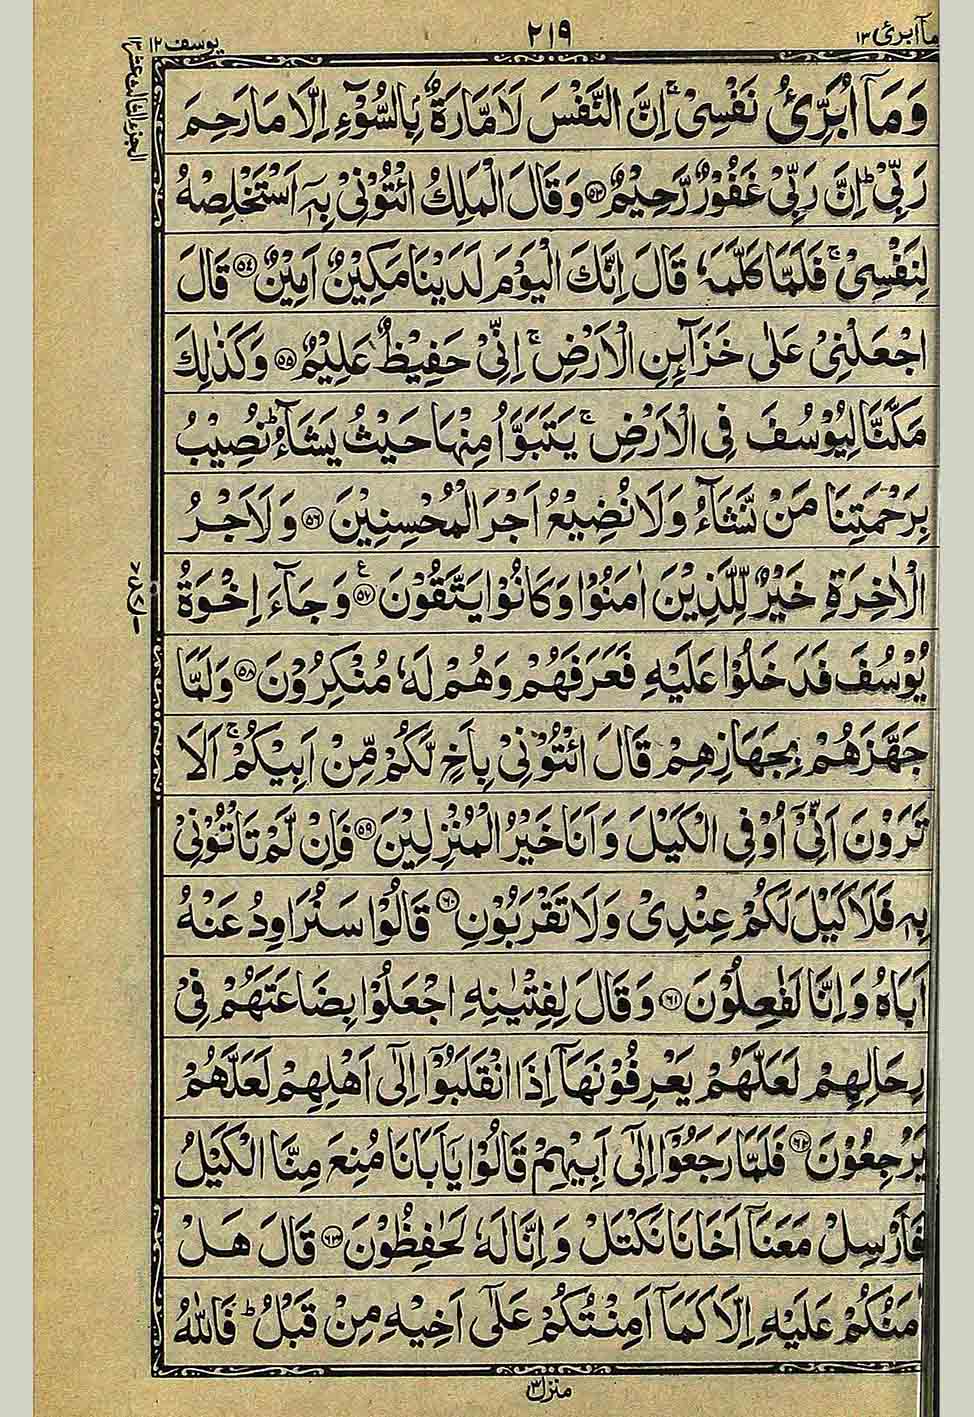 مآ ابرئ ١٣
٢١٩
يوسف ١٢
الجزء الثالث عشر ١٣
وَمَآ اُبَرِّئُ نَفْسِيْ ۚ اِنَّ النَّفْسَ لَاَمَّارَةٌۢ بِالسُّوْٓءِ اِلَّا مَا رَحِمَ
رَبِّيْ ؕ اِنَّ رَبِّيْ غَفُوْرٌ رَّحِيْمٌ ۝٥٣ وَقَالَ الْمَلِكُ ائْتُوْنِيْ بِهٖٓ اَسْتَخْلِصْهُ
لِنَفْسِيْ ۚ فَلَمَّا كَلَّمَهٗ قَالَ اِنَّكَ الْيَوْمَ لَدَيْنَا مَكِيْنٌ اَمِيْنٌ ۝٥٤ قَالَ
اجْعَلْنِيْ عَلٰى خَزَآئِنِ الْاَرْضِ ۚ اِنِّيْ حَفِيْظٌ عَلِيْمٌ ۝٥٥ وَكَذٰلِكَ
مَكَّنَّا لِيُوْسُفَ فِى الْاَرْضِ ۚ يَتَبَوَّاُ مِنْهَا حَيْثُ يَشَآءُ ؕ نُصِيْبُ
بِرَحْمَتِنَا مَنْ نَّشَآءُ وَلَا نُضِيْعُ اَجْرَ الْمُحْسِنِيْنَ ۝٥٦ وَلَاَجْرُ
الْاٰخِرَةِ خَيْرٌ لِّلَّذِيْنَ اٰمَنُوْا وَكَانُوْا يَتَّقُوْنَ ۝٥٧ ع وَجَآءَ اِخْوَةُ
يُوْسُفَ فَدَخَلُوْا عَلَيْهِ فَعَرَفَهُمْ وَهُمْ لَهٗ مُنْكِرُوْنَ ۝٥٨ وَلَمَّا
جَهَّزَهُمْ بِجَهَازِهِمْ قَالَ ائْتُوْنِيْ بِاَخٍ لَّكُمْ مِّنْ اَبِيْكُمْ ۚ اَلَا
تَرَوْنَ اَنِّيْٓ اُوْفِى الْكَيْلَ وَاَنَا خَيْرُ الْمُنْزِلِيْنَ ۝٥٩ فَاِنْ لَّمْ تَاْتُوْنِيْ
بِهٖ فَلَا كَيْلَ لَكُمْ عِنْدِيْ وَلَا تَقْرَبُوْنِ ۝٦٠ قَالُوْا سَنُرَاوِدُ عَنْهُ
اَبَاهُ وَاِنَّا لَفٰعِلُوْنَ ۝٦١ وَقَالَ لِفِتْيٰنِهِ اجْعَلُوْا بِضَاعَتَهُمْ فِيْ
رِحَالِهِمْ لَعَلَّهُمْ يَعْرِفُوْنَهَآ اِذَا انْقَلَبُوْٓا اِلٰٓى اَهْلِهِمْ لَعَلَّهُمْ
يَرْجِعُوْنَ ۝٦٢ فَلَمَّا رَجَعُوْٓا اِلٰٓى اَبِيْهِمْ قَالُوْا يٰٓاَبَانَا مُنِعَ مِنَّا الْكَيْلُ
فَاَرْسِلْ مَعَنَآ اَخَانَا نَكْتَلْ وَاِنَّا لَهٗ لَحٰفِظُوْنَ ۝٦٣ قَالَ هَلْ
اٰمَنُكُمْ عَلَيْهِ اِلَّا كَمَآ اَمِنْتُكُمْ عَلٰٓى اَخِيْهِ مِنْ قَبْلُ ؕ فَاللّٰهُ
منزل ٣